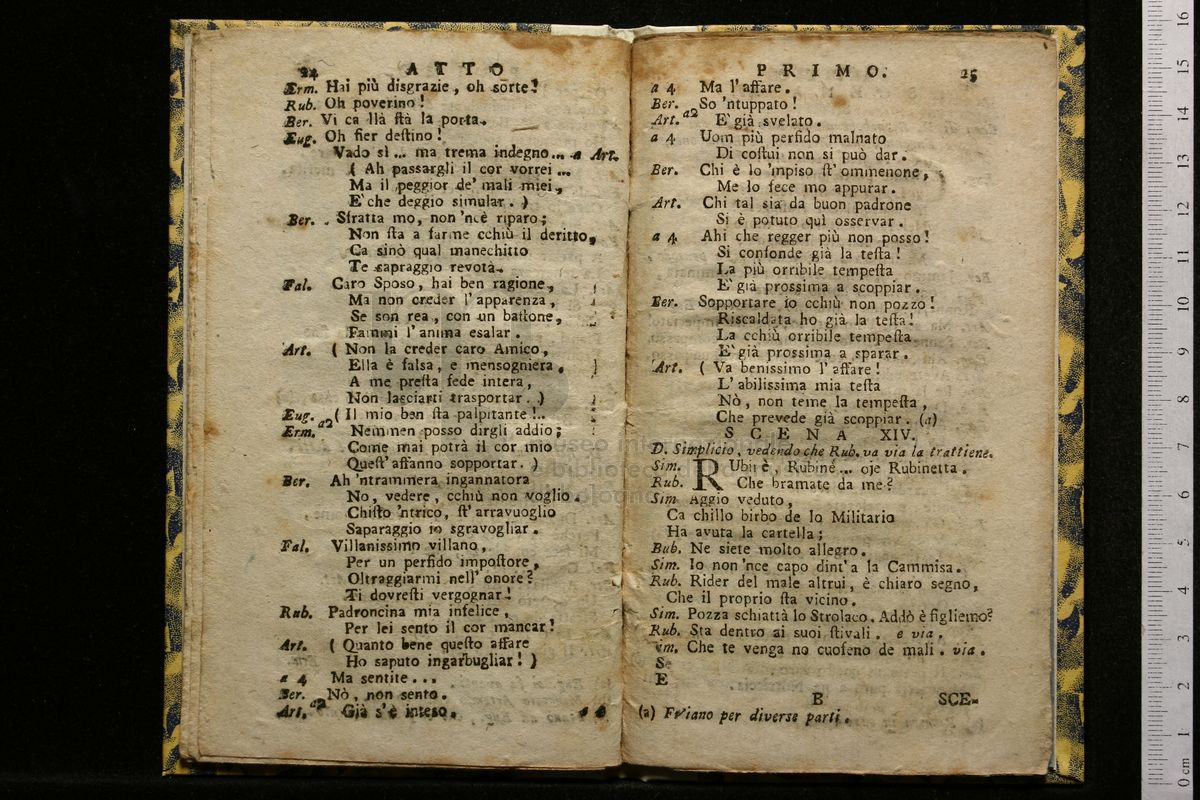 24 ATTO
Erm. Hai più disgrazie, oh sorte!
Rub. Oh poverino!
Ber. Vi ca llà stà la porta.
Eug. Oh fier destino!
Vado sì... ma trema indegno... a Art.
( Ah passargli il cor vorrei ...
Ma il peggior de' mali miei,
E' che deggio simular. )
Ber. Sfratta mo, non 'ncè riparo;
Non sta a farme cchiù il deritto,
Ca sinò qual manechitto
Te sapraggio revotà.
Fal. Caro Sposo, hai ben ragione,
Ma non creder l'apparenza,
Se son rea, con un bastone,
Fammi l'anima esalar.
Art. ( Non la creder caro Amico,
Ella è falsa, e mensogniera.
A me presta fede intera,
Non lasciarti trasportar. )
Eug. ( Il mio ben sta palpitante!..
Erm. a2 Nemmen posso dirgli addio;
Come mai potrà il cor mio
Quest' affanno sopportar. )
Ber. Ah 'ntrammera ingannatora
No, vedere, cchiù non voglio.
Chisto 'ntrico, st' arravuoglio
Saparaggio io sgravogliar.
Fal. Villanissimo villano,
Per un perfido impostore,
Oltraggiarmi nell' onore?
Ti dovresti vergognar!
Rub. Padroncina mia infelice,
Per lei sento il cor mancar!
Art. ( Quanto bene questo affare
Ho saputo ingarbugliar! )
a 4 Ma sentite...
Ber. Nò, non sento.
Art. a2 Già s'è inteso.
PRIMO. 25
a 4 Ma l'affare.
Ber. So 'ntuppato!
Art. a2 E' già svelato.
a 4 Uom più perfido malnato
Di costui non si può dar.
Ber. Chi è lo 'mpiso st' ommenone,
Me lo fece mo appurar.
Art. Chi tal sia da buon padrone
Si è potuto quì osservar.
a 4 Ahi che regger più non posso!
Si confonde già la testa!
La più orribile tempesta
E' già prossima a scoppiar.
Ber. Sopportare io cchiù non pozzo!
Riscaldata ho già la testa!
La cchiù orribile tempesta
E' già prossima a sparar.
Art. ( Va benissimo l'affare!
L'abilissima mia testa
Nò, non teme la tempesta,
Che prevede già scoppiar. (a)
SCENA XIV.
D. Simplicio, vedendo che Rub. va via la trattiene.
Sim. RUbinè, Rubinè... oje Rubinetta.
Rub. Che bramate da me?
Sim Aggio veduto,
Ca chillo birbo de lo Militario
Ha avuta la cartella;
Bub. Ne siete molto allegro.
Sim. Io non 'nce capo dint' a la Cammisa.
Rub. Rider del male altrui, è chiaro segno,
Che il proprio sta vicino.
Sim. Pozza schiattà lo Strolaco. Addò è figliemo?
Rub. Sta dentro ai suoi stivali. e via.
Sim. Che te venga no cuofeno de mali. via.
Se
E
B SCE-
(a) Friano per diverse parti.